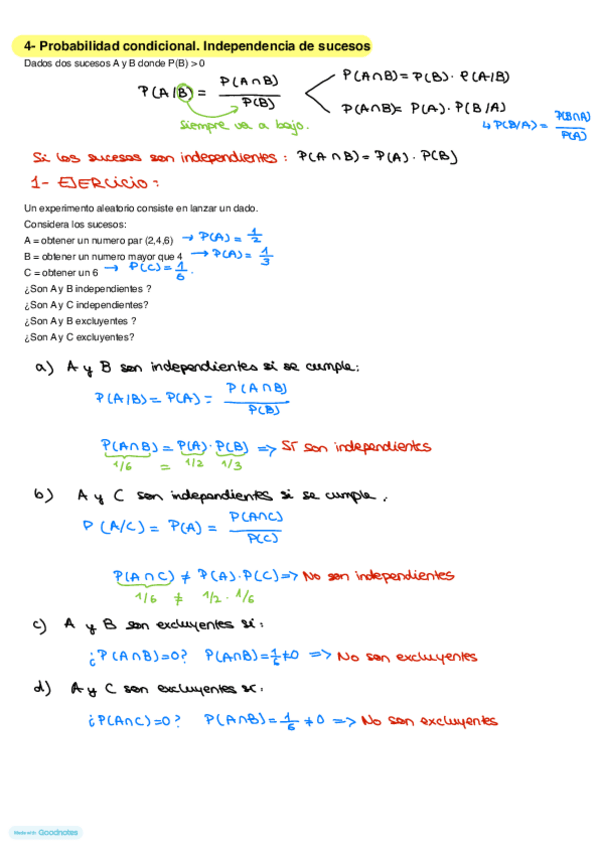 4- Probabilidad condicional. Independencia de sucesos
Dados dos sucesos A y B donde P(B) > 0
P(A|B) = P(A∩B) / P(B)
P(A∩B) = P(B) · P(A/B)
P(A∩B) = P(A) · P(B/A)
↳ P(B/A) = P(B∩A) / P(A)
siempre va a bajo.
Si los sucesos son independientes : P(A∩B) = P(A) · P(B)
1- EJERCICIO :
Un experimento aleatorio consiste en lanzar un dado.
Considera los sucesos:
A = obtener un numero par (2,4,6) → P(A) = 1/2
B = obtener un numero mayor que 4 → P(A) = 1/3
C = obtener un 6 → P(C) = 1/6.
¿Son A y B independientes ?
¿Son A y C independientes?
¿Son A y B excluyentes ?
¿Son A y C excluyentes?
a) A y B son independientes si se cumple:
P(A/B) = P(A) = P(A∩B) / P(B)
P(A∩B) = P(A) · P(B) => SI son independientes
1/6 = 1/2 1/3
b) A y C son independientes si se cumple.
P(A/C) = P(A) = P(A∩C) / P(C)
P(A∩C) ≠ P(A) · P(C) => No son independientes
1/6 ≠ 1/2 · 1/6
c) A y B son excluyentes si:
¿P(A∩B)=0? P(A∩B) = 1/6 ≠ 0 => No son excluyentes
d) A y C son excluyentes si:
¿P(A∩C)=0? P(A∩B) = 1/6 ≠ 0 => No son excluyentes
Made with Goodnotes